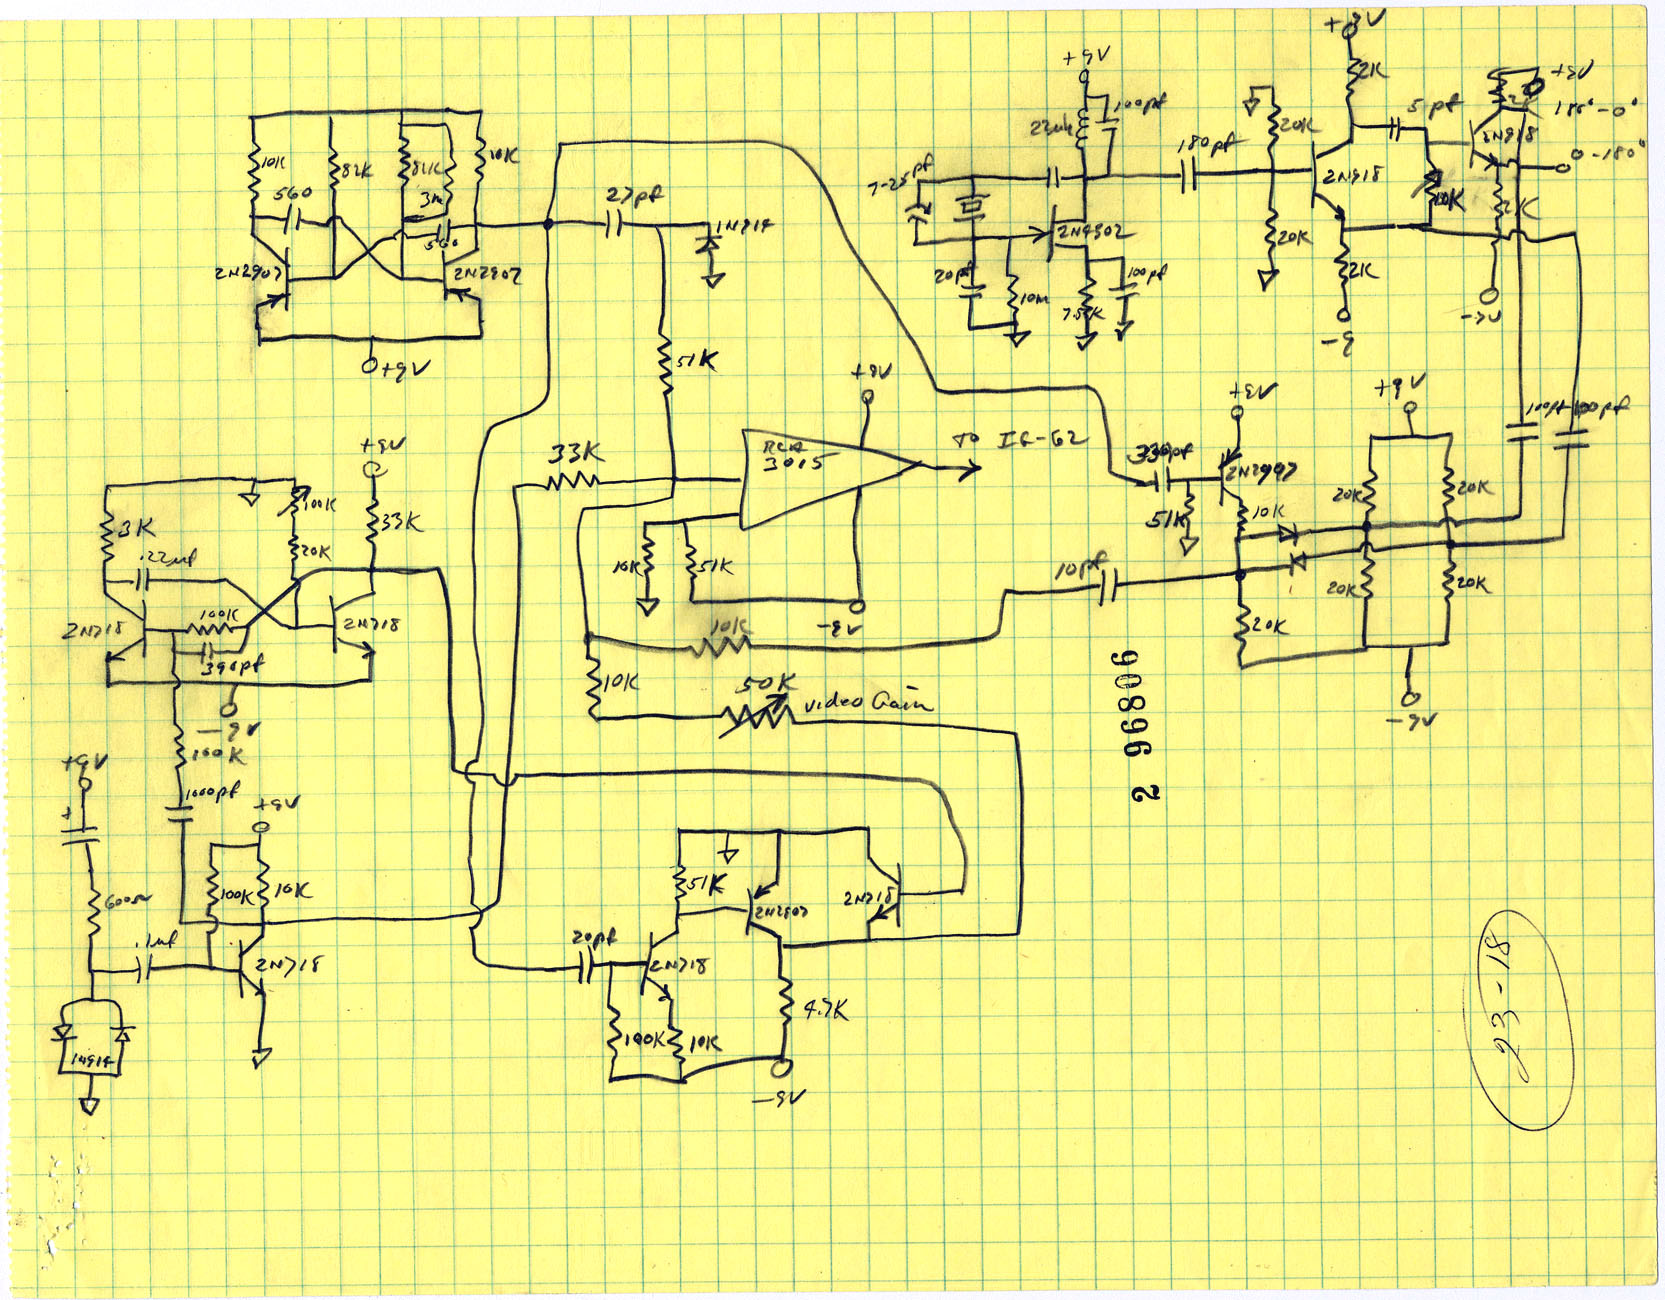 +9V
+9V
+9V
22uh
100pf
2K
5pf
2K
180°-0°
0-180°
2N918
10K
560
82K
82K
10K
3m
560
2N2907
2N2907
+9V
27pf
1N914
51K
7-25pf
180pf
20K
2N918
10K
2K
20K
2N4302
20pf
10m
7.5K
100pf
2K
-9
-9V
+9V
RCA
3015
TO IG-62
33K
10K
51K
-9V
+9V
+9V
330pf
2N2907
51K
10K
20K
20K
100pf
100pf
10pf
20K
20K
20K
-9V
+9V
3K
.22uf
100K
20K
33K
2N718
100K
2N718
390pf
-9V
10K
10K
50K
video Gain
100K
1000pf
+9V
+
600Ω
+9V
100K
10K
.1uf
2N718
1N914
51K
2N2907
2N718
20pf
2N718
100K
10K
4.7K
-9V
2 96806
23-18